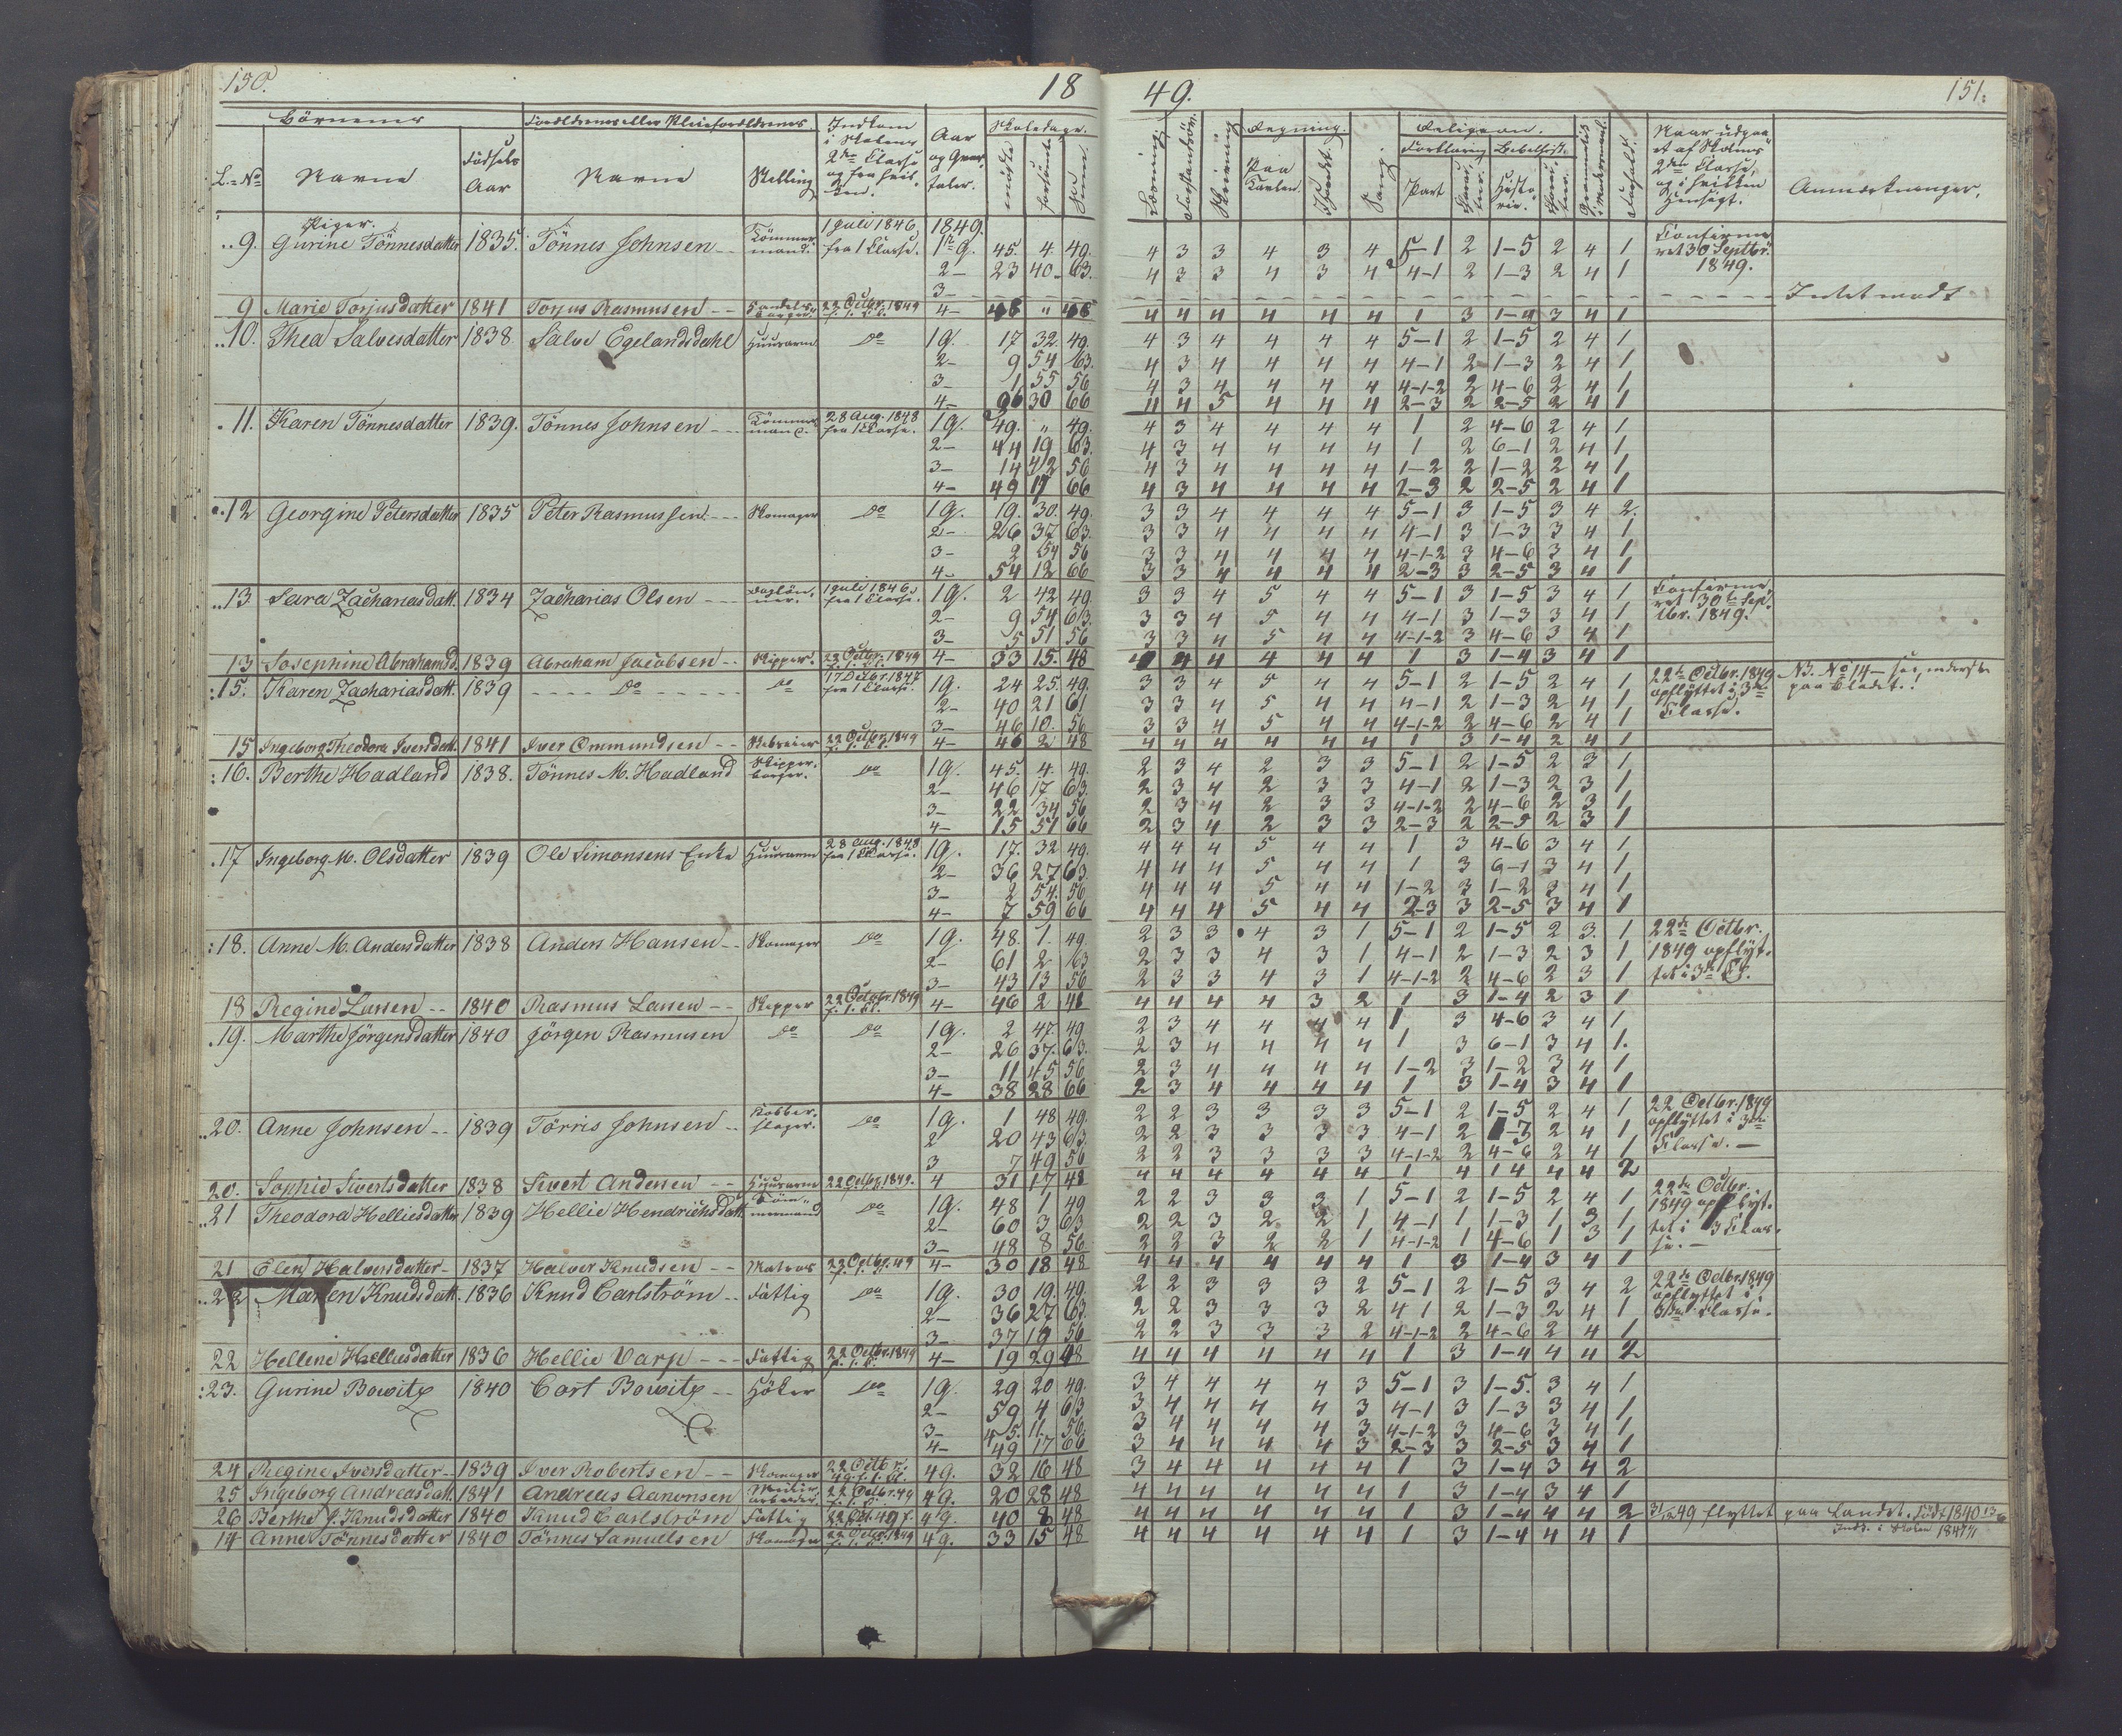 150. 18 49. 151.
Börnenes Forældrenes eller Pleieforældrenes Indkom i Skolens 2den Classe og fra hvilken. Aar og Qvartaler. Skoledage. Religion.
L. No Navne Födsels Aar Navne Stilling mödte forsömte Sum. Læsning Forstandsöv. Skrivning Regning. Paa Tavlen. I Hovedet. Sang. Forklaring Bibelhist. Part Histories Naar udgaaet af Skolens 2den Classe, og i hvilken Hensigt. Anmærkninger.
Piger. 1 Juli 1846 1849.
9. Gurine Tönnesdatter 1835. Tönnes Johnsen Tömmermand. fra 1 Classe. 1ste Q. 45. 4. 49. 4 3 3 4 3 4 5-1 2 1-5 2 4 1 Confirmeret 30 Septbr 1849.
2 23 40 63. 4 3 3 4 3 4 4-1 2 1-3 2 4 1
3 Intet mödt
9 Marie Torjusdatter 1841 Torjus Rasmusen 22 Octbr. 1849 4 48 " 48 4 4 4 4 4 4 1 3 1-4 3 4 1
10. Thea Salvesdatter 1838 Salve Egelandsdahl Huusarm Do 1Q. 17 32 49. 4 3 4 4 4 4 5-1 2 1-5 2 4 1
2 9 54 63. 4 3 4 4 4 4 4-1 2 1-3 2 4 1
3 1 55 56 4 3 4 4 4 4 4-1-2 2 4-6 2 4 1
4 36 30 66 4 4 5 4 4 4 2-3 2 2-5 2 4 1
11. Karen Tönnesdatter 1839. Tönnes Johnsen Tömmermand. 28 Aug. 1848 fra 1 Classe. 1Q. 49. " 49. 4 3 4 4 4 4 1 2 4-6 2 4 1
2 44 19 63. 4 3 4 4 4 4 1 2 6-1 2 4 1
3 14 42 56 4 3 4 4 4 4 1-2 2 1-2 2 4 1
4 49 17 66 4 3 4 4 4 4 2-3 2 2-5 2 4 1
12 Georgine Petersdatter 1835 Peter Rasmussen Skomager Do 1Q. 19. 30. 49. 3 3 4 4 4 4 5-1 3 1-5 3 4 2.
2 26 37 63. 3 3 4 4 4 4 4-1 3 1-3 3 4 1
3 2 54 56 3 3 4 4 4 4 4-1-2 3 4-6 3 4 1
4 54 12 66 3 3 4 4 4 4 2-3 3 2-5 3 4 1
13 Sara Zachariasdatt. 1834 Zacharias Olsen Daglönner. 1 Juli 1846 fra 1 Classe. 1Q. 2 42 49. 3 3 4 5 4 4 5-1 3 1-5 3 4 1 Confirmeret 30te Septbr. 1849.
2 9 54 63. 3 3 4 5 4 4 4-1 3 1-3 3 4 1
3 5 51 56 3 3 4 5 4 4 4-1-2 3 4-6 3 4 1
13 Josephine Abrahamsd. 1839 Abraham Jacobsen Skipper. 22 Octbr. 1849 4 33 15. 48 4 4 4 4 4 4 1 3 1-4 3 4 1
15. Karen Zachariasdatt. 1839 Do Do 17 Octbr. 1847 fra 1 Classe. 1Q. 24 25. 49. 3 3 4 5 4 4 5-1 2 1-5 2 4 1 22de Octbr. 1849 opflyttet i 3die Classe. NB. No 14 - see nederste paa Bladet.
2 40 21 61 3 3 4 5 4 4 4-1 2 1-3 2 4 1
3 46 10. 56 3 3 4 5 4 4 4-1-2 2 4-6 2 4 1
15 Ingeborg Theodora Iversdatt. 1841 Iver Ommundsen Rebreier 22 Octbr. 1849 4 46 2 48 4 4 4 4 4 4 1 3 1-4 2 4 1
16. Berthe Hadland 1838. Tönnes M. Hadland Skipper. Do 1Q. 45. 4. 49. 2 3 4 2 3 3 5-1 2 1-5 2 3 1
2 46 17 63. 2 3 4 2 3 3 4-1 2 1-3 2 3 1
3 22 34 56 2 3 4 2 3 3 4-1-2 2 4-6 2 3 1
4 15 51 66 2 3 4 2 3 3 2-3 2 2-5 2 3 1
17 Ingeborg M. Olsdatter 1839 Ole Simonsens Enke Huusarm 28 Aug. 1848 fra 1 Classe. 1Q. 17. 32 49. 4 4 4 5 4 4 1 3 4-6 3 4 1
2 36 27 63. 4 4 4 5 4 4 1 3 6-1 3 4 1
3 2 54. 56 4 4 4 5 4 4 1-2 3 1-2 3 4 1
4 7 59 66 4 4 4 5 4 4 2-3 3 2-5 3 4 1
18. Anne M. Andersdatter 1838 Anders Hansen Skomager Do 1Q. 48. 1. 49 2 3 3 4 3 1 5-1 2 1-5 2 3. 1 22de Octbr. 1849 opflyttet i 3die Cl.
2 61 2 63 2 3 3 4 3 1 4-1 2 1-3 2 3 1
3 43 13 56 2 3 3 4 3 1 4-1-2 2 4-6 2 3 1
18 Regine Larsen 1840 Rasmus Larsen Skipper 22 Octobr. 1849 4 46 2 48 4 4 4 4 3 2 1 3 1-4 2 3 1
19. Marthe Jörgensdatter 1840 Jörgen Rasmusen Do Do 1Q. 2 47. 49 2 3 4 4 4 4 1 3 4-6 3 4 1
2 26 37. 63. 2 3 4 4 4 4 1 3 6-1 3 4 1.
3 11 45 56 2 3 4 4 4 4 1-2 3 1-2 3 4 1
4 38 28 66 2 3 4 4 4 4 1 3 1-4 3 4 1
20. Anne Johnsen 1839 Törris Johnsen Kobberslager. Do 1Q. 1 48 49. 2 2 3 3 3 3 5-1 2 1-5 2 4 1 22 Octbr. 1849 opflyttet i 3die Classe.
2 20 43 63. 2 2 3 3 3 3 4-1 2 1-3 2 4 1
3 7 49 56 2 2 3 3 3 3 4-1-2 2 4-6 2 4 1
20. Sophie Sivertsdatter 1838 Sivert Andersen Huusarm 22 Octbr. 1849. 4 31 17 48 4 4 4 4 4 4 1 4 1 4 4 4 2
21 Theodora Helliesdatter 1839 Hellie Hendrichsdatt. Tömmermand Do 1Q. 48 1 49 2 2 3 3 3 1 5-1 2 1-5 2 4 1 22de Octbr. 1849 opflyttet i 3 Classe.
2 60 3 63 2 2 3 2 2 1 4-1 1 1-3 1 3 1
3 48 8 56 2 2 3 2 2 1 4-1-2 1 4-6 1 3 1
21 Elen Halversdatter 1837 Halver Knudsen Matros 22 Octbr. 49 4 30 18 48 4 4 4 4 4 4 1 3 1-4 3 4 1
22 Maren Knudsdatt. 1836 Knud Carlström Fattig Do 1Q. 30 19. 49. 2 2 3 3 3 2 5-1 2 1-5 3 4 2 22de Octbr 1849 opflyttet i 3die Classe.
2 36 27 63. 2 2 3 3 3 2 4 1 2 1-3 2 4 1
3 37 19 56 2 2 3 3 3 2 4-1-2 2 4-6 2 4 1
22 Hellene Helliesdatter 1836 Hellie Varp Fattig 22 Octbr. 1849 4 19 29 48 4 4 4 4 4 4 1 3 1-4 4 4 2
23. Gurine Bowitz 1840 Cart Bowitz Höker Do 1Q. 29 20 49. 3 4 4 4 4 3 5-1 3 1-5. 3 4 1
2 59 4 63 3 4 4 4 4 3 4-1 3 1-3 3 4 1
3 45. 11. 56. 3 4 4 4 4 3 4-1-2 3 4-6 3 4 1
4 49 17 66 3 4 4 4 4 3 2-3 3 2-5 3 4 1
24 Regine Iversdatter 1839 Iver Robertsen Skomager 22 Octbr. 49 f. 1. Cl. 4Q. 32 16 48 3 4 4 4 4 4 1 3 1-4 3 4 2
25 Ingeborg Andreasdatt. 1841 Andreas Aanonsen 22 Octbr. 49 4Q. 20 28 48 4 4 4 4 4 4 1 3 1-4 3 4 1
26 Berthe J. Knudsdatter 1840 Knud Carlström Fattig 22 Oct. 49 f. 4Q. 40 8 48 4 4 4 4 4 4 1 3 1-4 4 4 2 31/12 49 flyttet paa Landet. Födt 1840
14 Anne Tönnesdatter 1840 Tönnes Samuelsen Skomager 22 Octbr. 1849 4Q. 33 15 48 4 4 4 4 4 4 1 3 1-4 4 4 1 Inds. i Skolen 1847